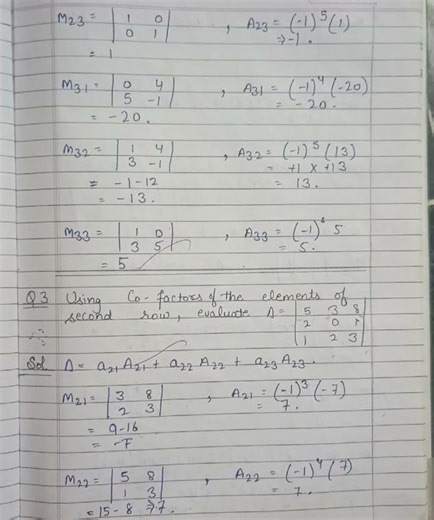 M23 = | 1 0 | , A23 = (-1)^5 (1)
| 0 1 | ⇒ -1.
= 1
M31 = | 0 4 | , A31 = (-1)^4 (-20)
| 5 -1 | = -20.
= -20.
M32 = | 1 4 | , A32 = (-1)^5 (13)
| 3 -1 | = +1 x +13
= -1-12 = 13.
= -13.
M33 = | 1 0 | , A33 = (-1)^6 5
| 3 5 | = 5.
= 5
Q3 Using Co-factors of the elements of
second row, evaluate Δ = | 5 3 8 |
| 2 0 1 |
| 1 2 3 |
Sol Δ = a21 A21 + a22 A22 + a23 A23.
M21 = | 3 8 | , A21 = (-1)^3 (-7)
| 2 3 | = 7.
= 9-16
= -7
M22 = | 5 8 | , A22 = (-1)^4 (7)
| 1 3 | = 7.
= 15-8 ⇒ 7.